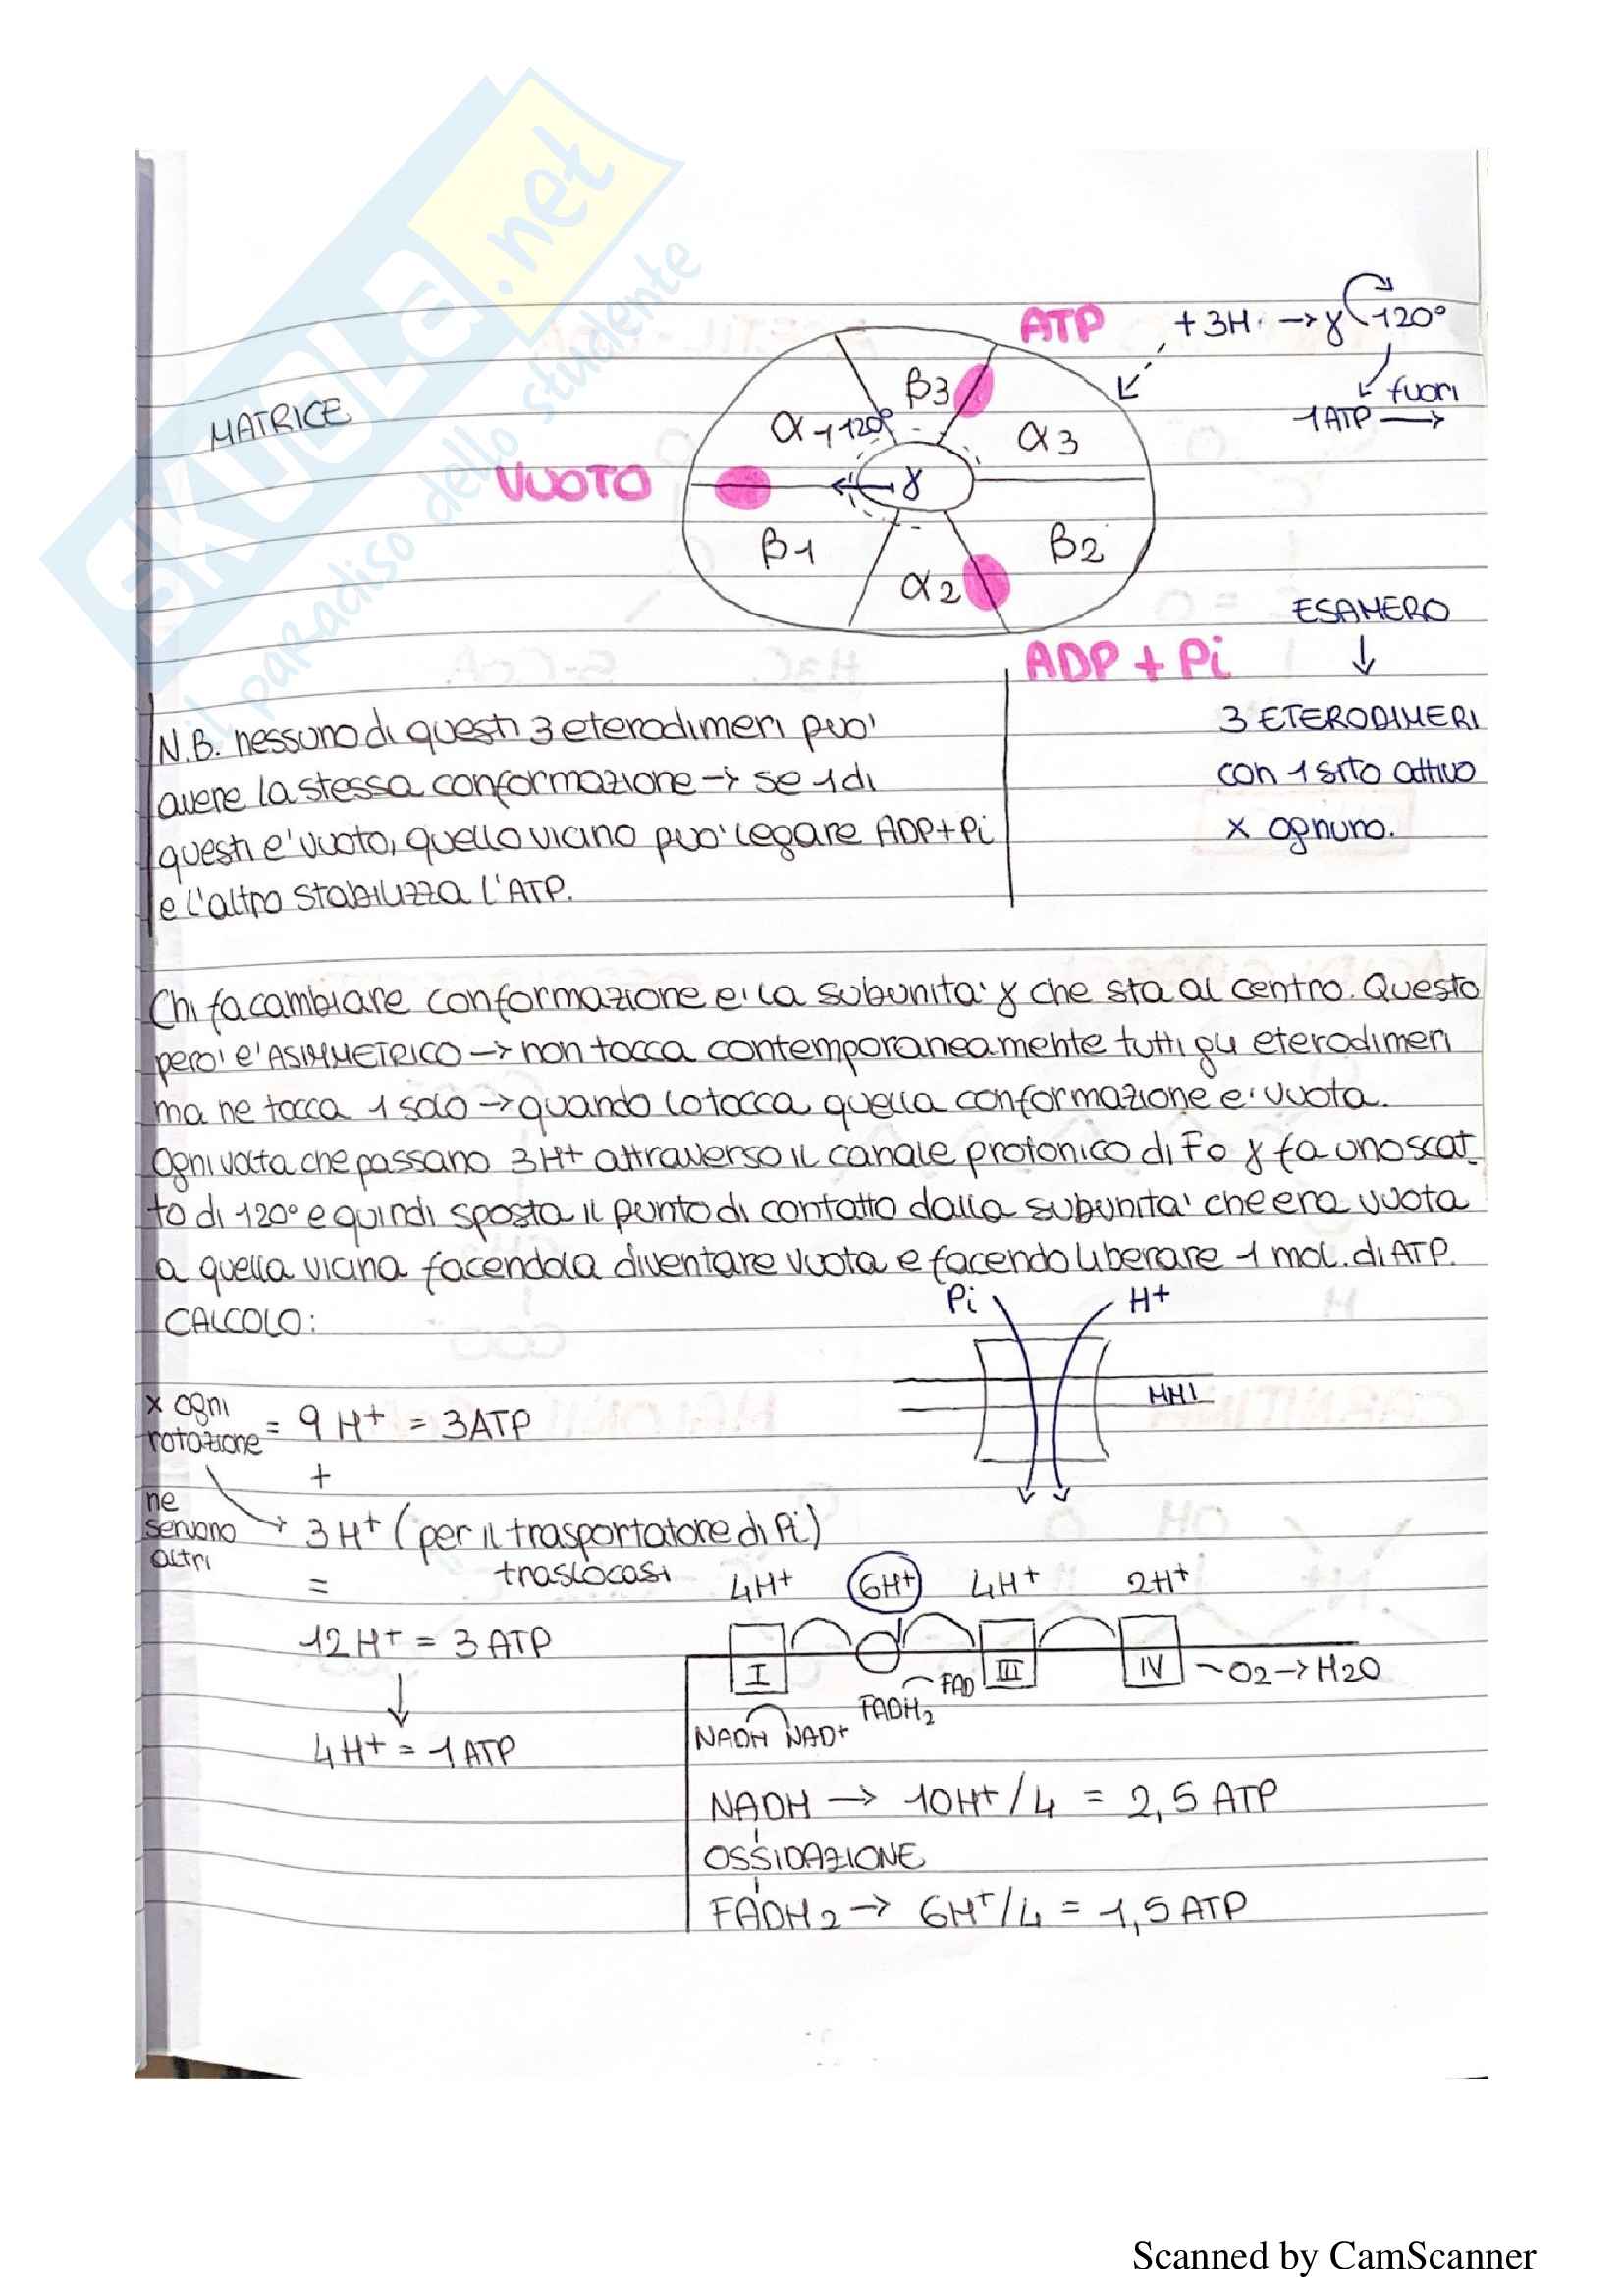 SKUOLA.net
il paradiso dello studente
MATRICE
ATP
+3H+ → γ 120°
fuori
1ATP →
β3
α1 120°
α3
VUOTO
γ
β1
β2
α2
ADP + Pi
ESAMERO
↓
3 ETERODIMERI
con 1 sito attivo
x ognuno.
N.B. nessuno di questi 3 eterodimeri puo'
avere la stessa conformazione → se 1 di
questi e' vuoto, quello vicino puo' legare ADP+Pi
e l'altro stabilizza l'ATP.
Chi fa cambiare conformazione e' la subunita' γ che sta al centro. Questo
pero' e' ASIMMETRICO → non tocca contemporaneamente tutti gli eterodimeri
ma ne tocca 1 solo → quando lo tocca quella conformazione e' vuota.
Ogni volta che passano 3H+ attraverso il canale protonico di Fo γ fa uno scat
to di 120° e quindi sposta il punto di contatto dalla subunita' che era vuota
a quella vicina facendola diventare vuota e facendo liberare 1 mol. di ATP.
CALCOLO:
Pi H+
MMI
x ogni
rotazione = 9 H+ = 3ATP
+
ne
servono
altri
3 H+ (per il trasportatore di Pi)
=
traslocasi
12H+ = 3 ATP
↓
4H+ = 1 ATP
4H+ 6H+ 4H+ 2H+
I III IV O2→H2O
FADH2 FAD
NADH NAD+
NADH → 10H+/4 = 2,5 ATP
OSSIDAZIONE
FADH2 → 6H+/4 = 1,5 ATP
Scanned by CamScanner